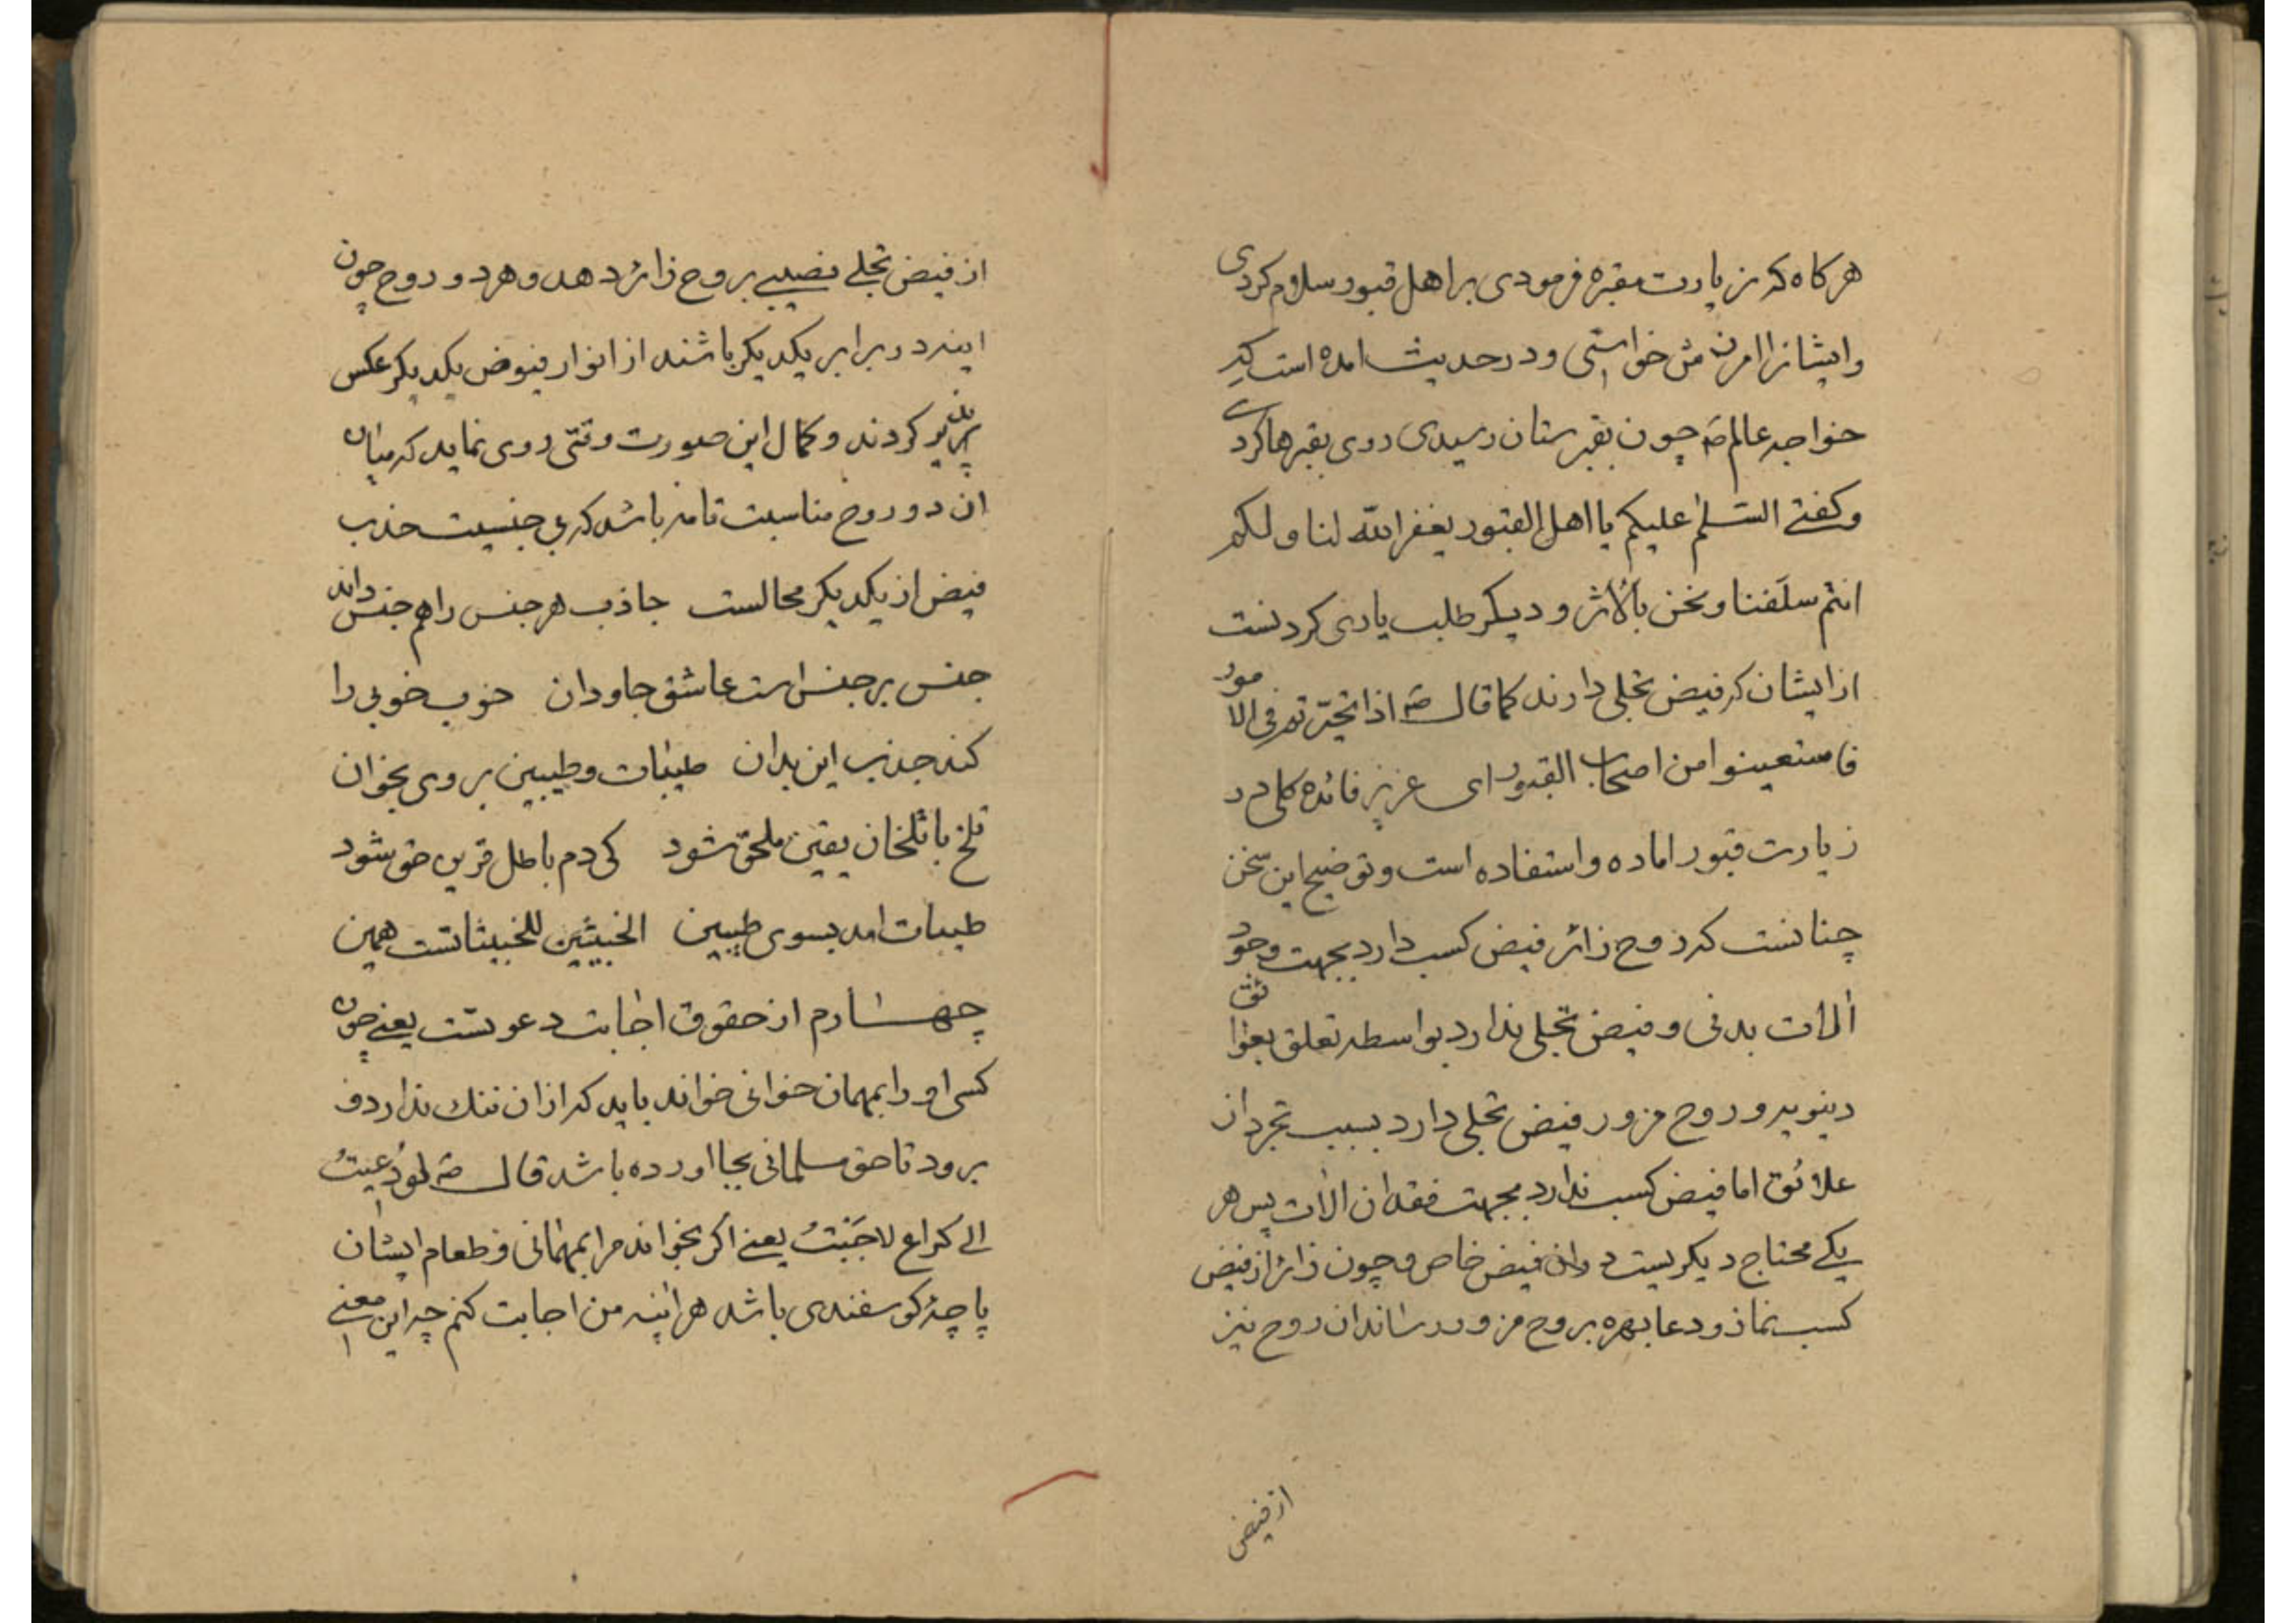 هرکاه که زیارت مقبره فرمودی بر اهل قبور سلام کردی
وایشانرا امرزش خواستی ودر حدیث امده است که
خواجه عالم صَ چون بقبرستان رسیدی روی بقبرها کردی
وکفتی السّلام علیکم یا اهل القبور یغفر الله لنا ولکم
انتم سلَفنا ونحن بالاثر ودیکر طلب یاری کردنست
از ایشان که فیض تجلی دارند کما قال صَ اذا تحیّرتم فی الامور
فاستعینوا من اصحاب القبور ای عزیز فائده کلی در
زیارت قبور اماده واستفاده است وتوضیح این سخن
چنانست که روح زائر فیض کسب دارد بجهت وجود
آلات بدنی وفیض تجلی ندارد بواسطه تعلق بعوائق
دینویه وروح مزور فیض تجلی دارد بسبب تجرد از
علائق اما فیض کسب ندارد بجهت فقدان آلات پس هر
یکی محتاج دیکریست در ان فیض خاص وچون زائر از فیض
کسب نماز ودعا بهره بروح مزور رساند ان روح نیز
از فیض
از فیض تجلی نصیبی بروح زائر دهد وهر دو روح چون
اینه در برابر یکدیکر باشند از انوار فیوض یکدیکر عکس
پذیر کردند وکمال این صورت وقتی روی نماید که میان
ان دو روح مناسبت تامه باشد که بی جنسیت جذب
فیض از یکدیکر محالست جاذب هر جنس را هم جنس دان
جنس بر جنس است عاشق جاودان خوب خوبی را
کند جذب این بدان طیبات وطیبین بر وی بخوان
تلخ با تلخان یقین ملحق شود کی دم باطل قرین حق شود
طیبات امد بسوی طیبین الخبیثین للخبیثاتست همین
چهارم از حقوق اجابت دعوتست یعنی چون
کسی او را بمهمان خوانی خواند باید که از ان ننک ندارد و
برود تا حق مسلمانی بجا اورده باشد قال صَ لو دُعیتُ
الی کراع لاجَبْتُ یعنی اکر بخوانند مرا بمهمانی وطعام ایشان
پاچهٔ کوسفندی باشد هر اینه من اجابت کنم چه این معنی